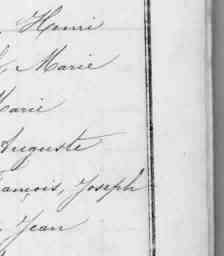 , Henri
, Marie
Marie
Auguste
François, Joseph
, Jean